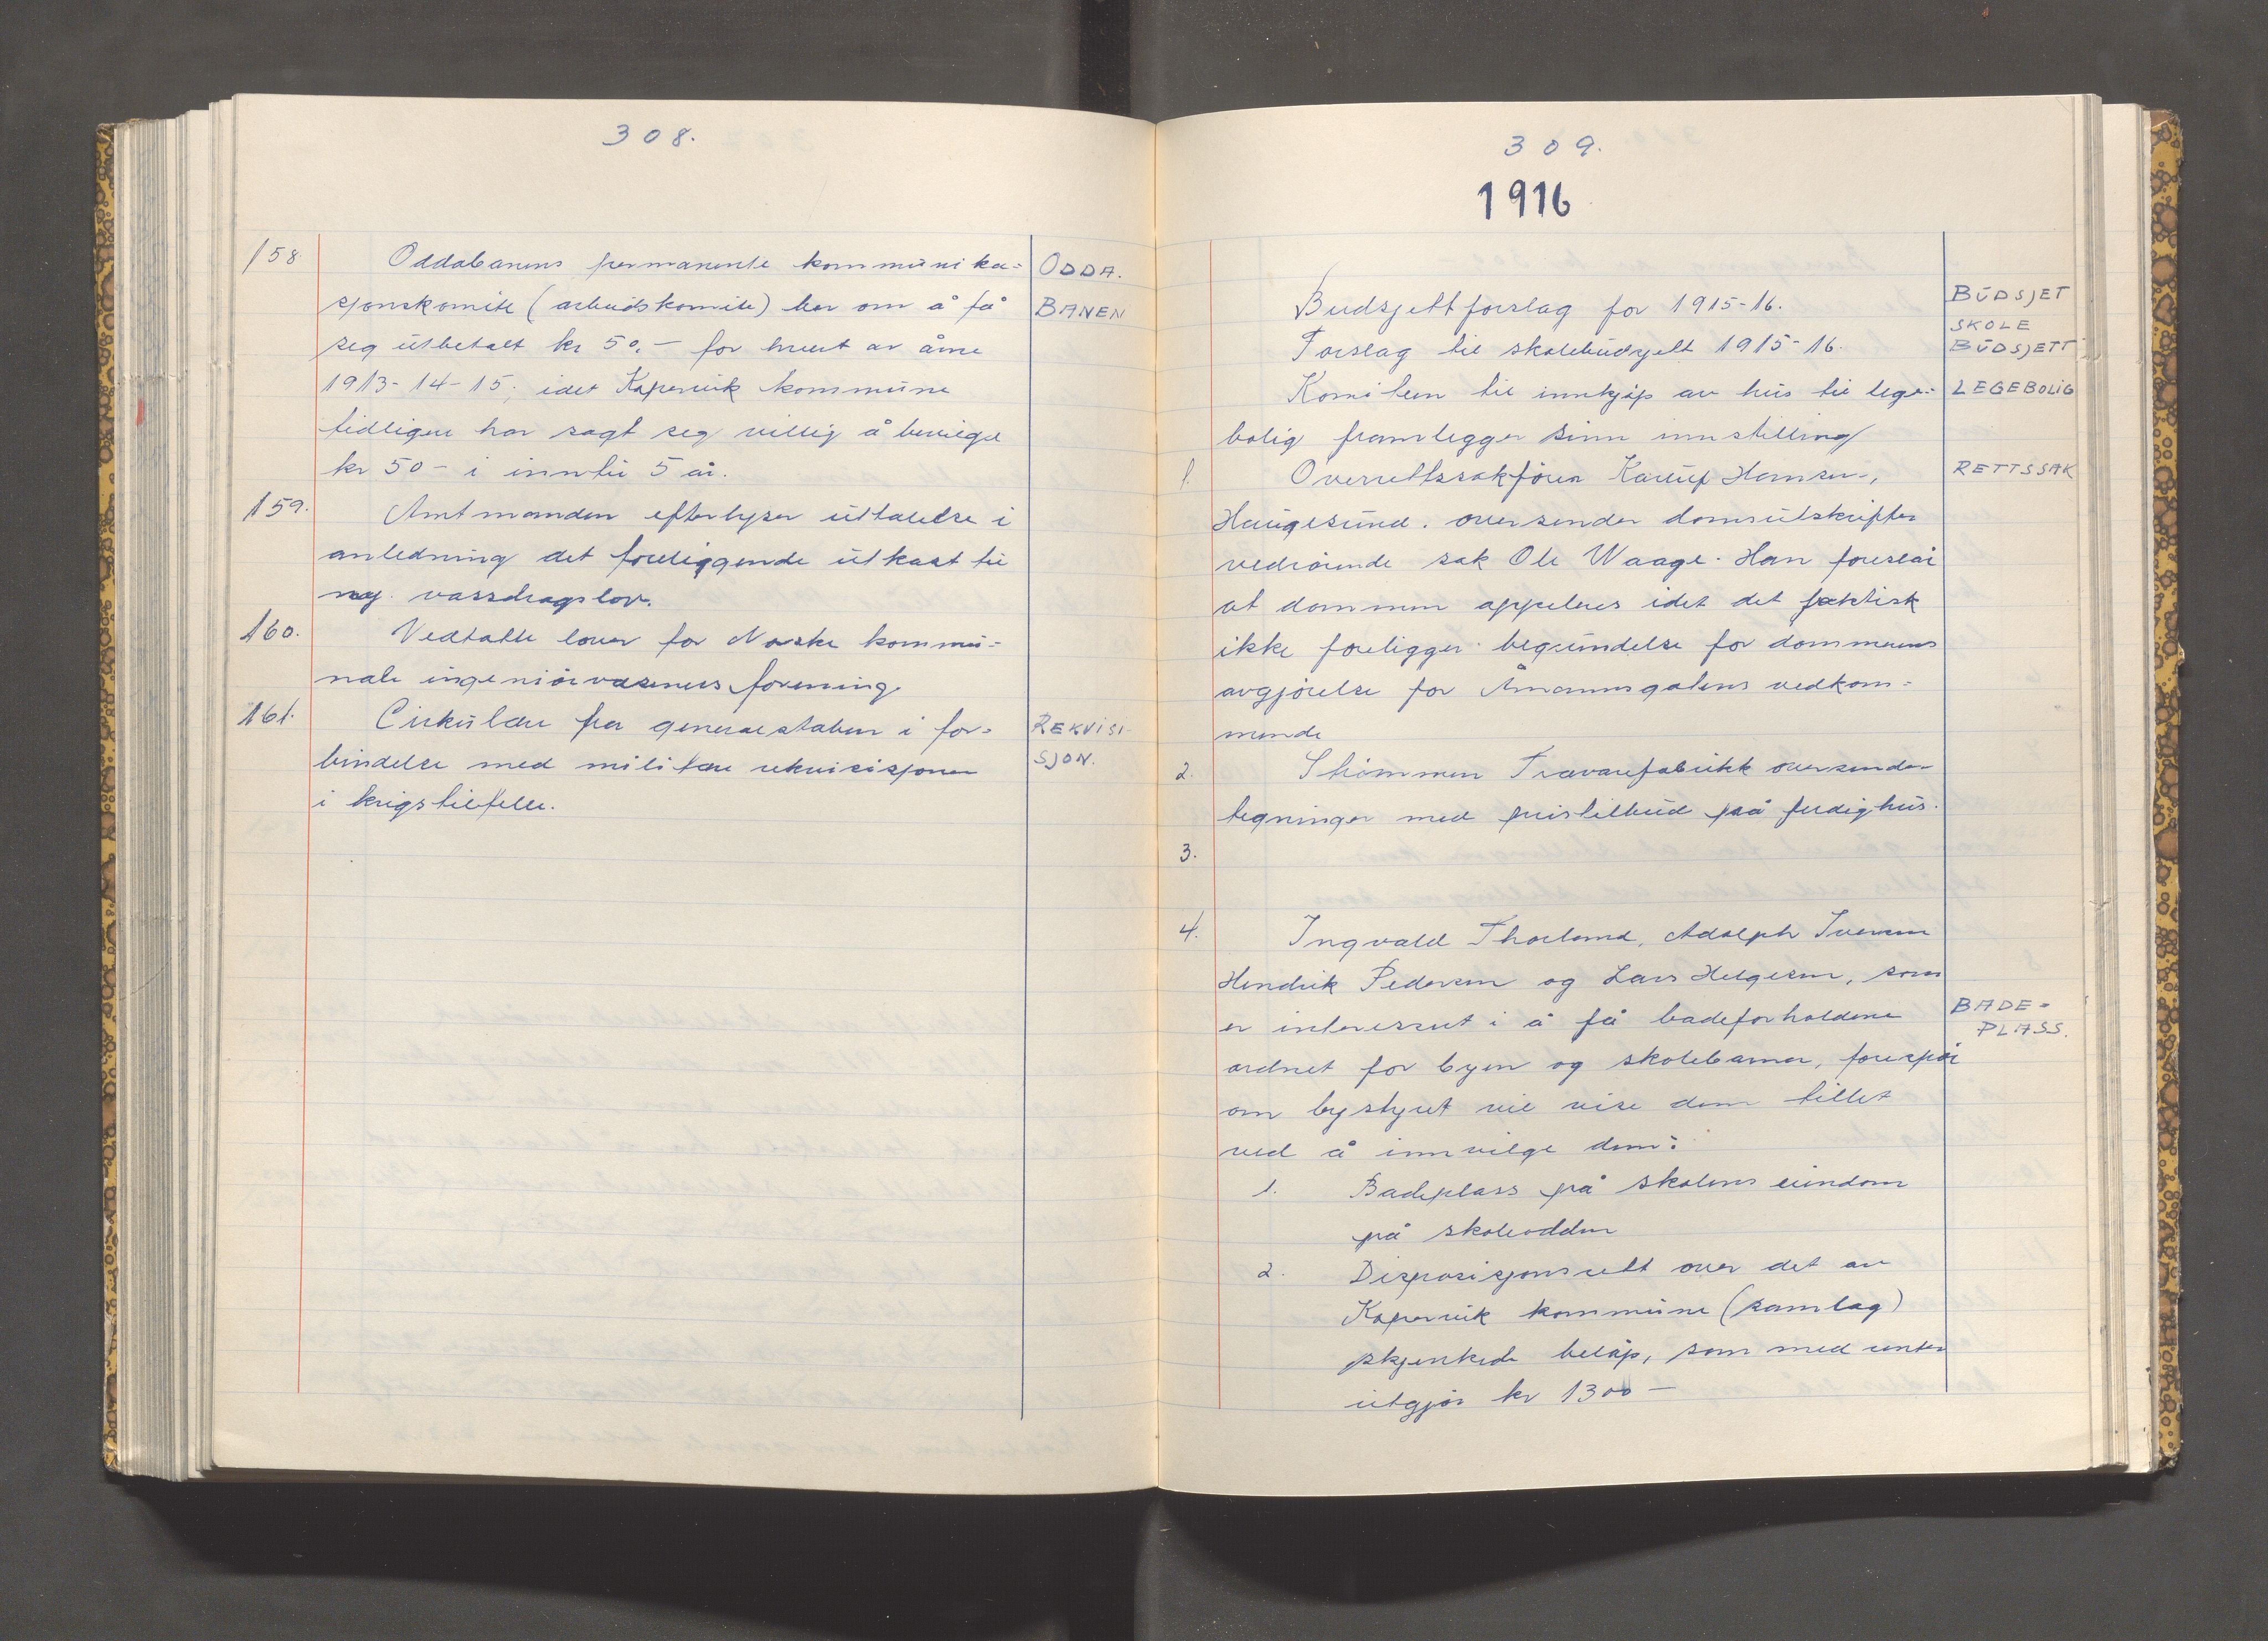 308.
158. Oddabanens permanente kommunika- ODDA.
sjonskomite (arbeidskomite) ber om å få BANEN
seg utbetalt kr 50,- for hvert av årne
1913-14-15, idet Kopervik kommune
tidligere har sagt seg villig å bevilge
kr 50- i inntil 5 år.
159. Amtmanden efterlyser uttalelse i
anledning det foreliggende utkast til
ny vassdragslov.
160. Vedtatte lover for Norske kommu-
nale ingeniørvæseners forening
161. Cirkulære fra generalstaben i for- REKVISI-
bindelse med militære rekvisisjoner SJON.
i krigstilfelle.
309.
1916
Budsjettforslag for 1915-16. BUDSJET
Forslag til skolebudsjett 1915-16. SKOLE BUDSJETT
Komiteen til innkjøp av hus til lege- LEGEBOLIG
bolig framlegger sinn innstilling
1. Overrettssakfører Karup Hansen, RETTSSAK
Haugesund, oversender domsutskrifter
vedrørende sak Ole Waage. Han foreslår
at dommen appeleres idet det faktisk
ikke foreligger begrundelse for dommerens
avgjørelse for Åmannsgatens vedkom-
mende
2. Strømmen Trævarefabrikk oversender
tegninger med pristilbud på ferdighus.
3.
4. Ingvald Thorland, Adolph Iversen
Hendrik Pedersen og Lars Helgesen, som
er interessert i å få badeforholdene BADE-
ordnet for byen og skolebarna, forespør PLASS.
om bystyret vil vise dem tillit
ved å innvilge dem:
1. Badeplass på skolens eiendom
på skoleodden
2. Disposisjonsrett over det av
Kopervik kommune (samlag)
skjenkede beløp, som med renter
utgjør kr 1300-